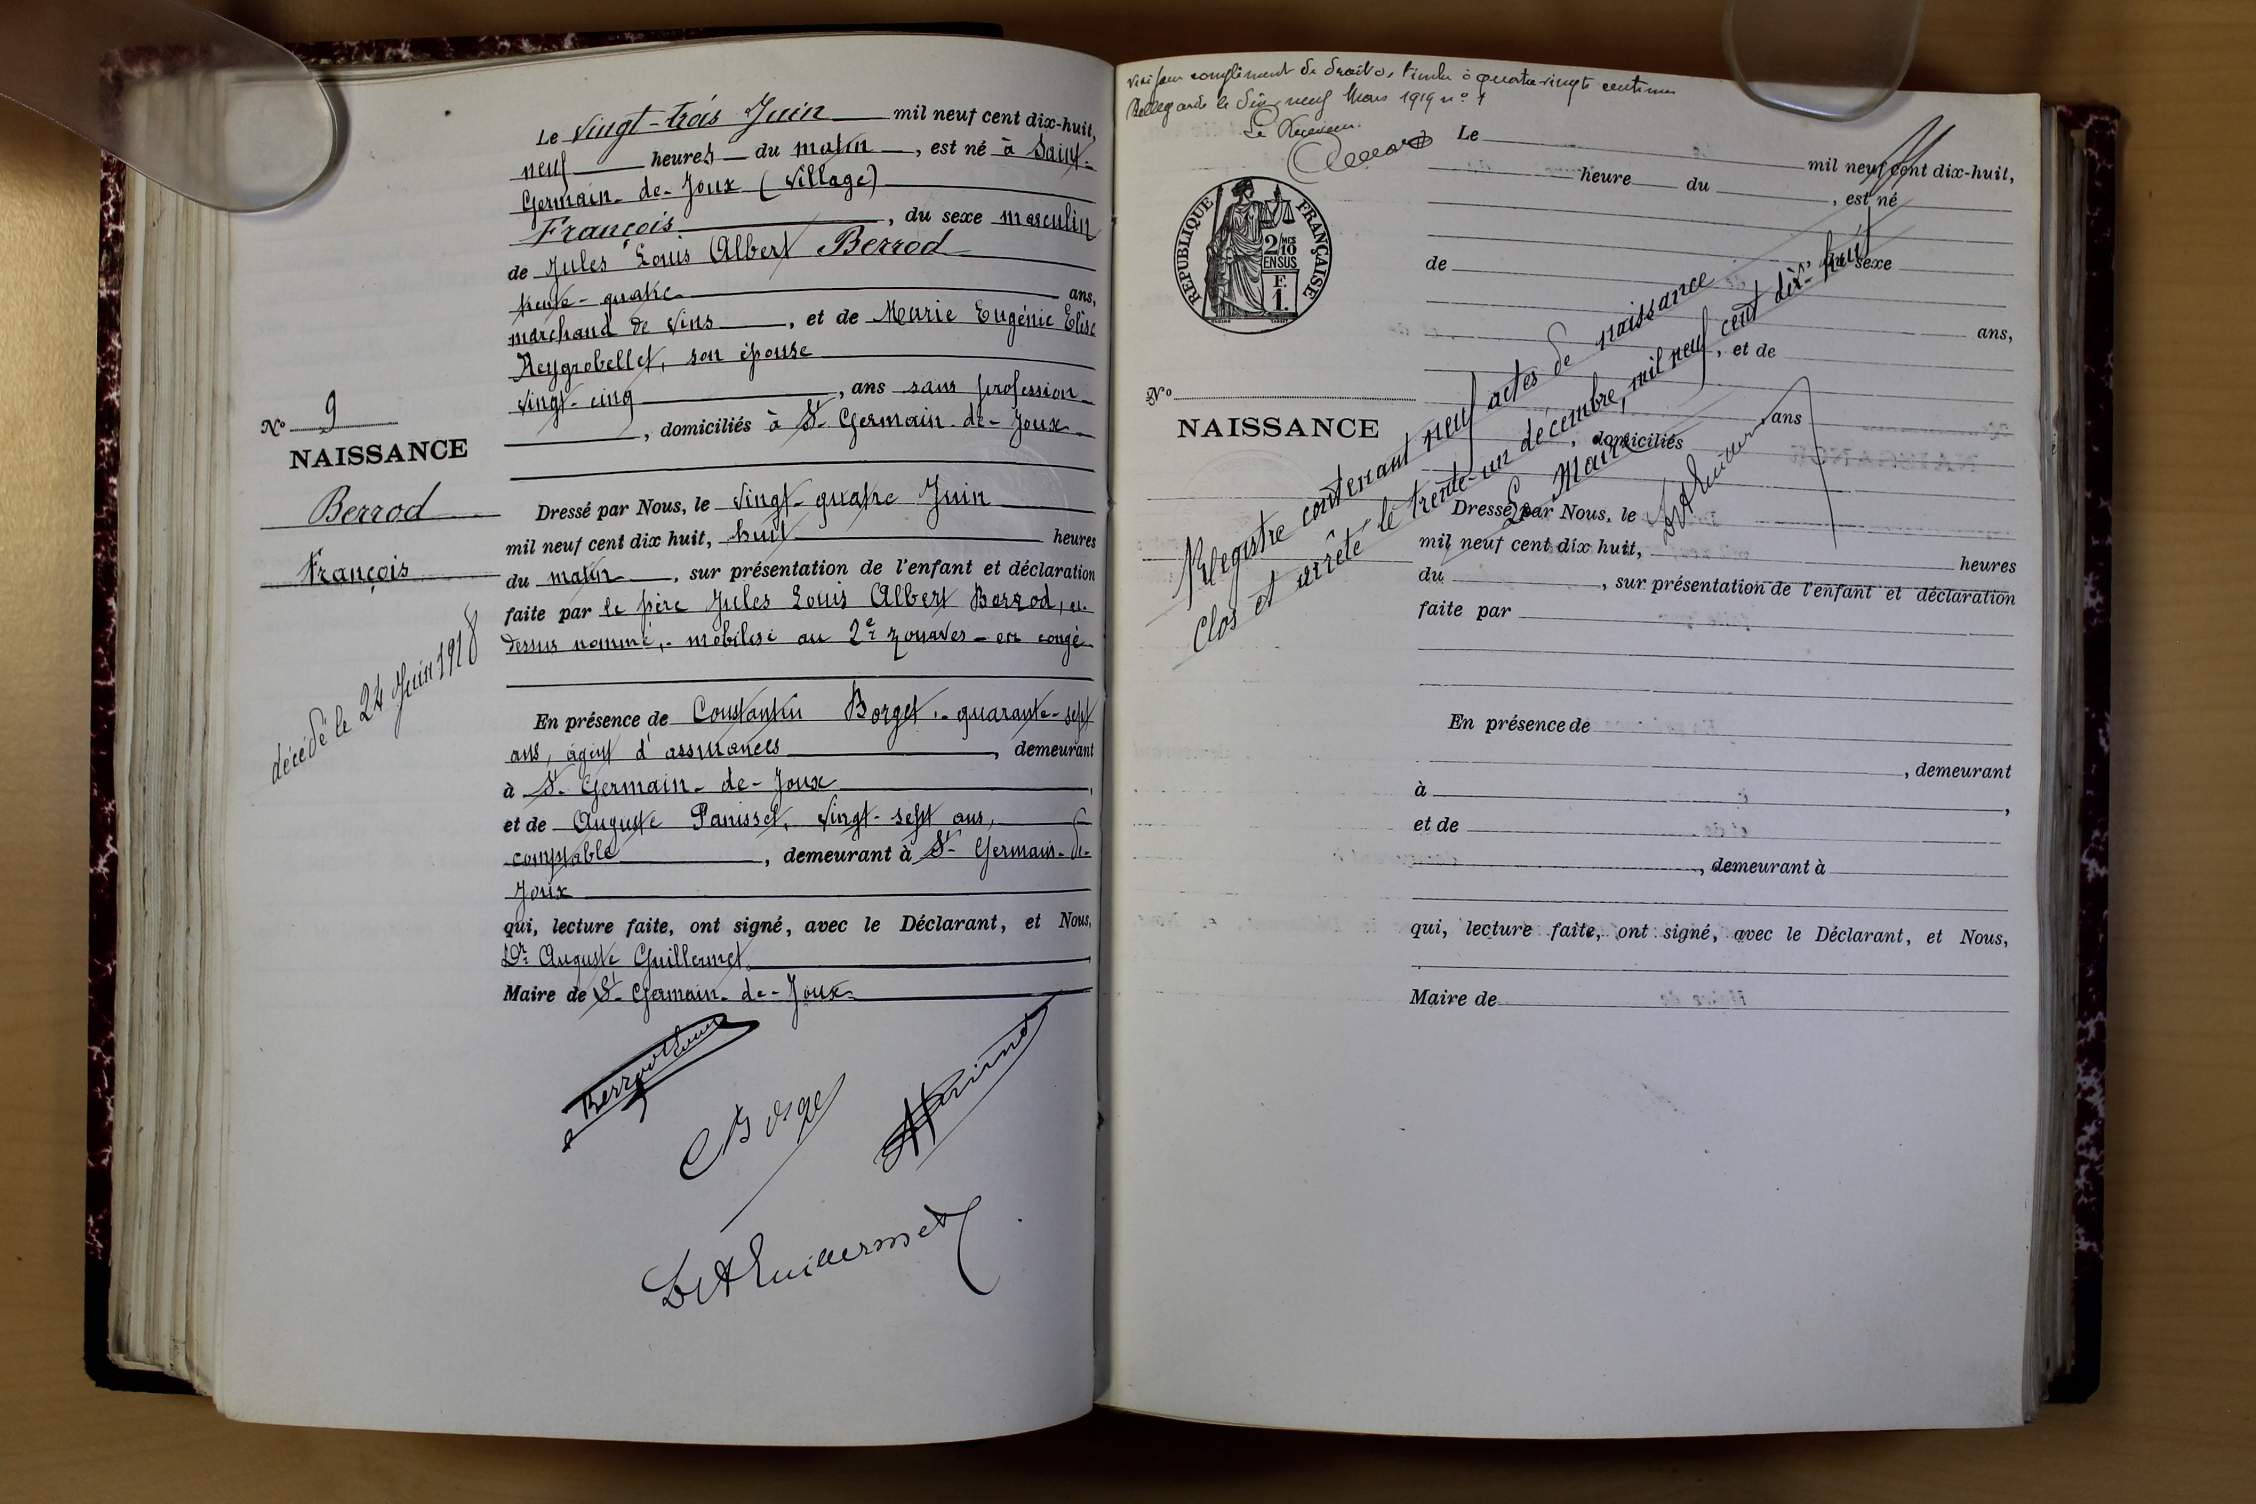 Le vingt-trois Juin mil neuf cent dix-huit,
neuf heures du matin, est né à Saint-
Germain-de-Joux (Village)
François, du sexe masculin
de Jules Louis Albert Berrod
trente-quatre ans,
marchand de vins, et de Marie Eugénie Elise
Reygrobellet, son épouse
vingt-cinq, ans sans profession
, domiciliés à St-Germain-de-Joux
No 9
NAISSANCE
Berrod
François
décédé le 24 Juin 1918
Dressé par Nous, le vingt-quatre Juin
mil neuf cent dix huit, huit heures
du matin, sur présentation de l'enfant et déclaration
faite par le père Jules Louis Albert Berrod, ci-
dessus nommé, - mobilisé au 2e zouaves - en congé
En présence de Constantin Borget, - quarante-sept
ans, agent d'assurances, demeurant
à St-Germain-de-Joux,
et de Auguste Panisset, vingt-sept ans,
comptable, demeurant à St-Germain-de-
Joux
qui, lecture faite, ont signé, avec le Déclarant, et Nous,
Dr Auguste Guillermet,
Maire de St-Germain-de-Joux
Berrod Louis
C Borget
Dr A Guillermet
Visé pour complément de droits, timbre à quatre-vingts centimes
Bellegarde le dix neuf Mars 1919 no 1
Le Receveur
RÉPUBLIQUE FRANÇAISE
2/10 MES
EN SUS
F.
1.
Le mil neuf cent dix-huit,
heure du , est né
du sexe
de
ans,
, et de
ans
, domiciliés
No
NAISSANCE
Registre contenant neuf actes de naissance
Clos et arrêté le trente-un décembre, mil neuf cent dix-huit
Le Maire
Dr A Guillermet
Dressé par Nous, le
mil neuf cent dix huit, heures
du , sur présentation de l'enfant et déclaration
faite par
En présence de
, demeurant
à ,
et de
, demeurant à
qui, lecture faite, ont signé, avec le Déclarant, et Nous,
Maire de